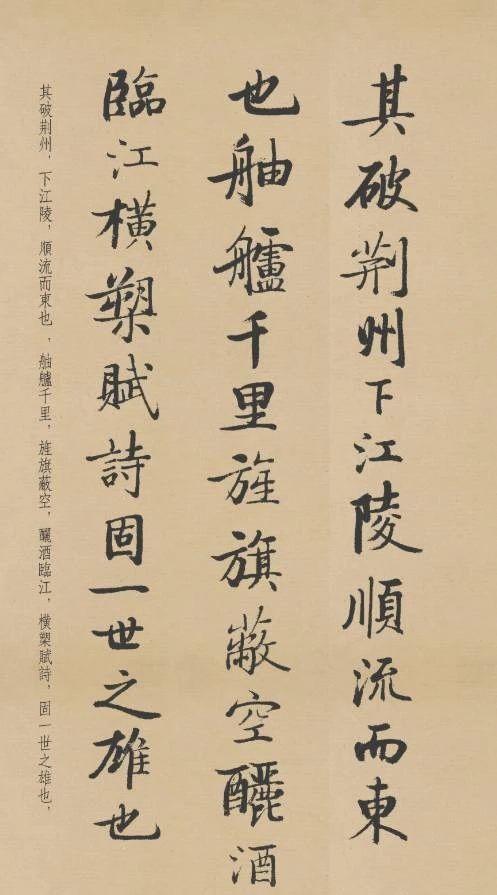 其破荆州下江陵順流而東
也舳艫千里旌旗蔽空釃酒
臨江橫槊賦詩固一世之雄也
其破荆州，下江陵，順流而東也，舳艫千里，旌旗蔽空，釃酒臨江，橫槊賦詩，固一世之雄也，